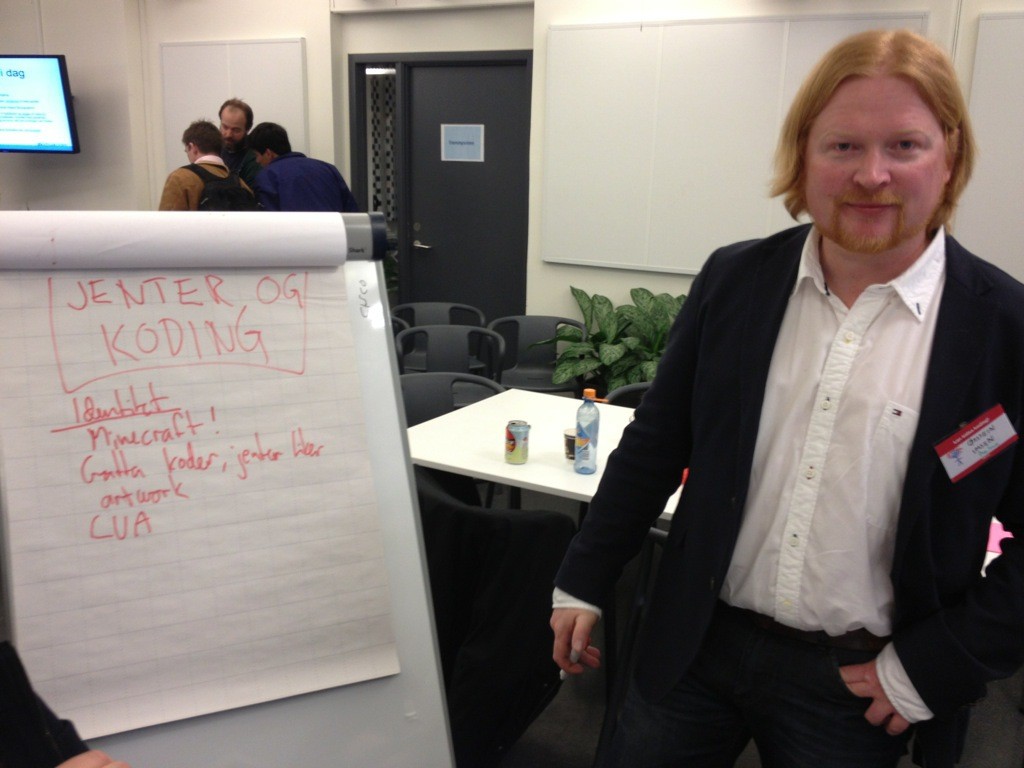 i dag
JENTER OG
KODING
Identitet
Minecraft!
Gutta koder, jenter liker
artwork
CUA